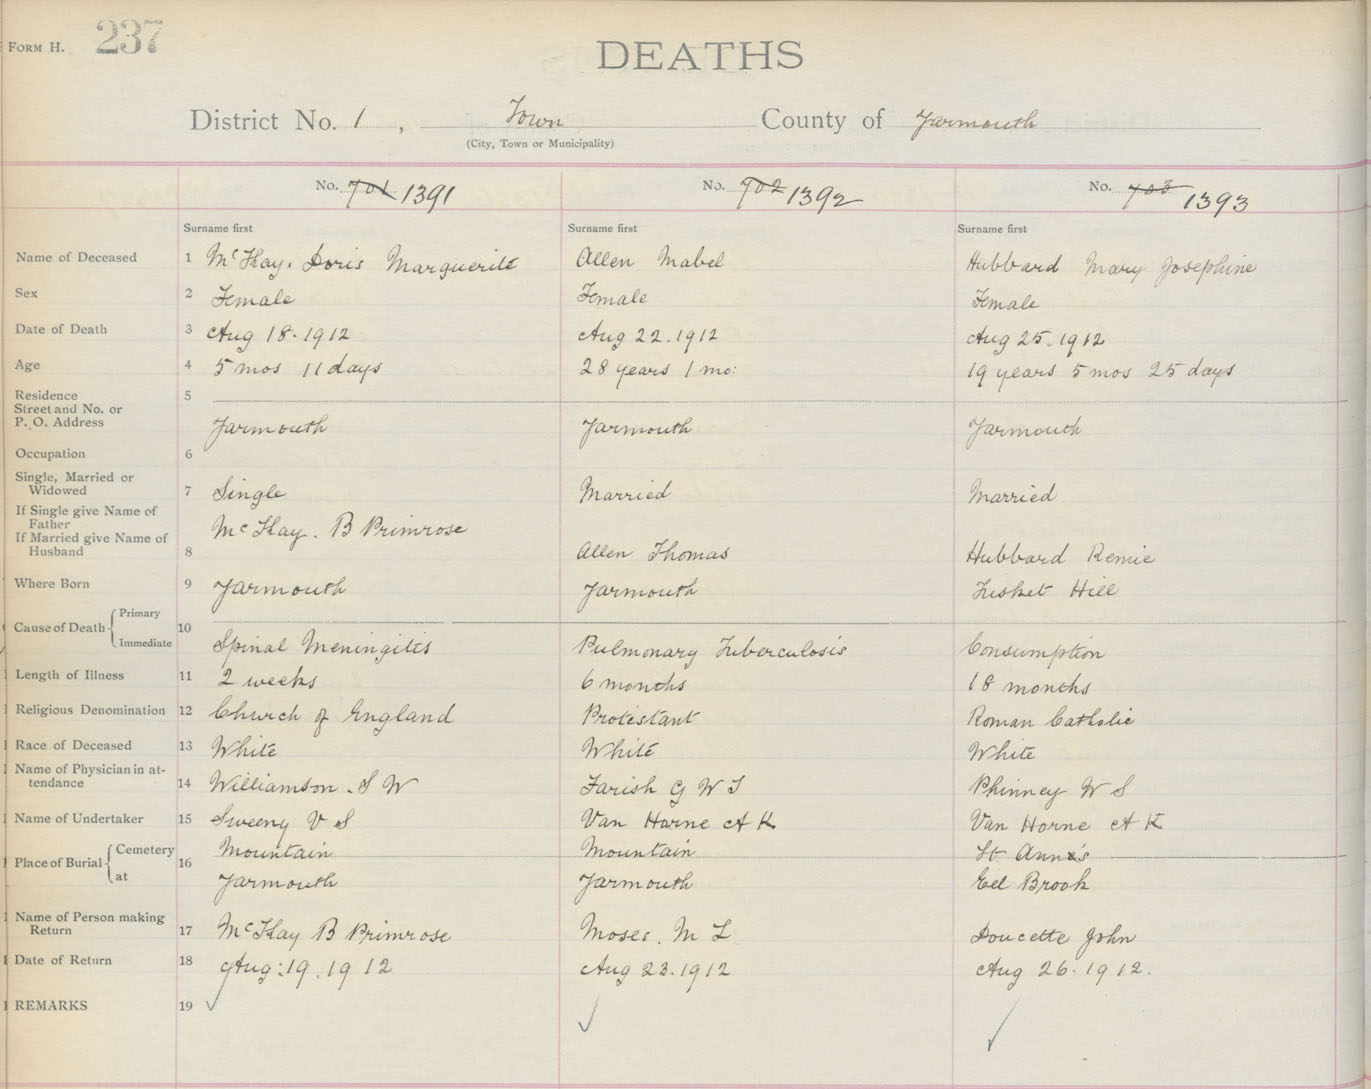 FORM H. 237
DEATHS
District No. 1, Town County of Yarmouth
(City, Town or Municipality)
No. 701 1391 No. 702 1392 No. 703 1393
Surname first Surname first Surname first
Name of Deceased 1 McKay. Doris Marguerite Allen Mabel Hubbard Mary Josephine
Sex 2 Female Female Female
Date of Death 3 Aug 18. 1912 Aug 22. 1912 Aug 25. 1912
Age 4 5 mos 11 days 28 years 1 mo: 19 years 5 mos 25 days
Residence 5
Street and No. or
P. O. Address Yarmouth Yarmouth Yarmouth
Occupation 6
Single, Married or
Widowed 7 Single Married Married
If Single give Name of
Father McKay. B Primrose
If Married give Name of
Husband 8 Allen Thomas Hubbard Remie
Where Born 9 Yarmouth Yarmouth Tusket Hill
Cause of Death Primary
10
Immediate Spinal Meningitis Pulmonary Tuberculosis Consumption
Length of Illness 11 2 weeks 6 months 18 months
Religious Denomination 12 Church of England Protestant Roman Catholic
Race of Deceased 13 White White White
Name of Physician in at-
tendance 14 Williamson. S W Farish G W T Phinney W S
Name of Undertaker 15 Sweeny V S Van Horne A K Van Horne A K
Place of Burial Cemetery 16 Mountain Mountain St Ann's
at Yarmouth Yarmouth Eel Brook
Name of Person making
Return 17 McKay B Primrose Moses. M L Doucette John
Date of Return 18 Aug: 19. 1912 Aug 23. 1912 Aug 26. 1912.
REMARKS 19